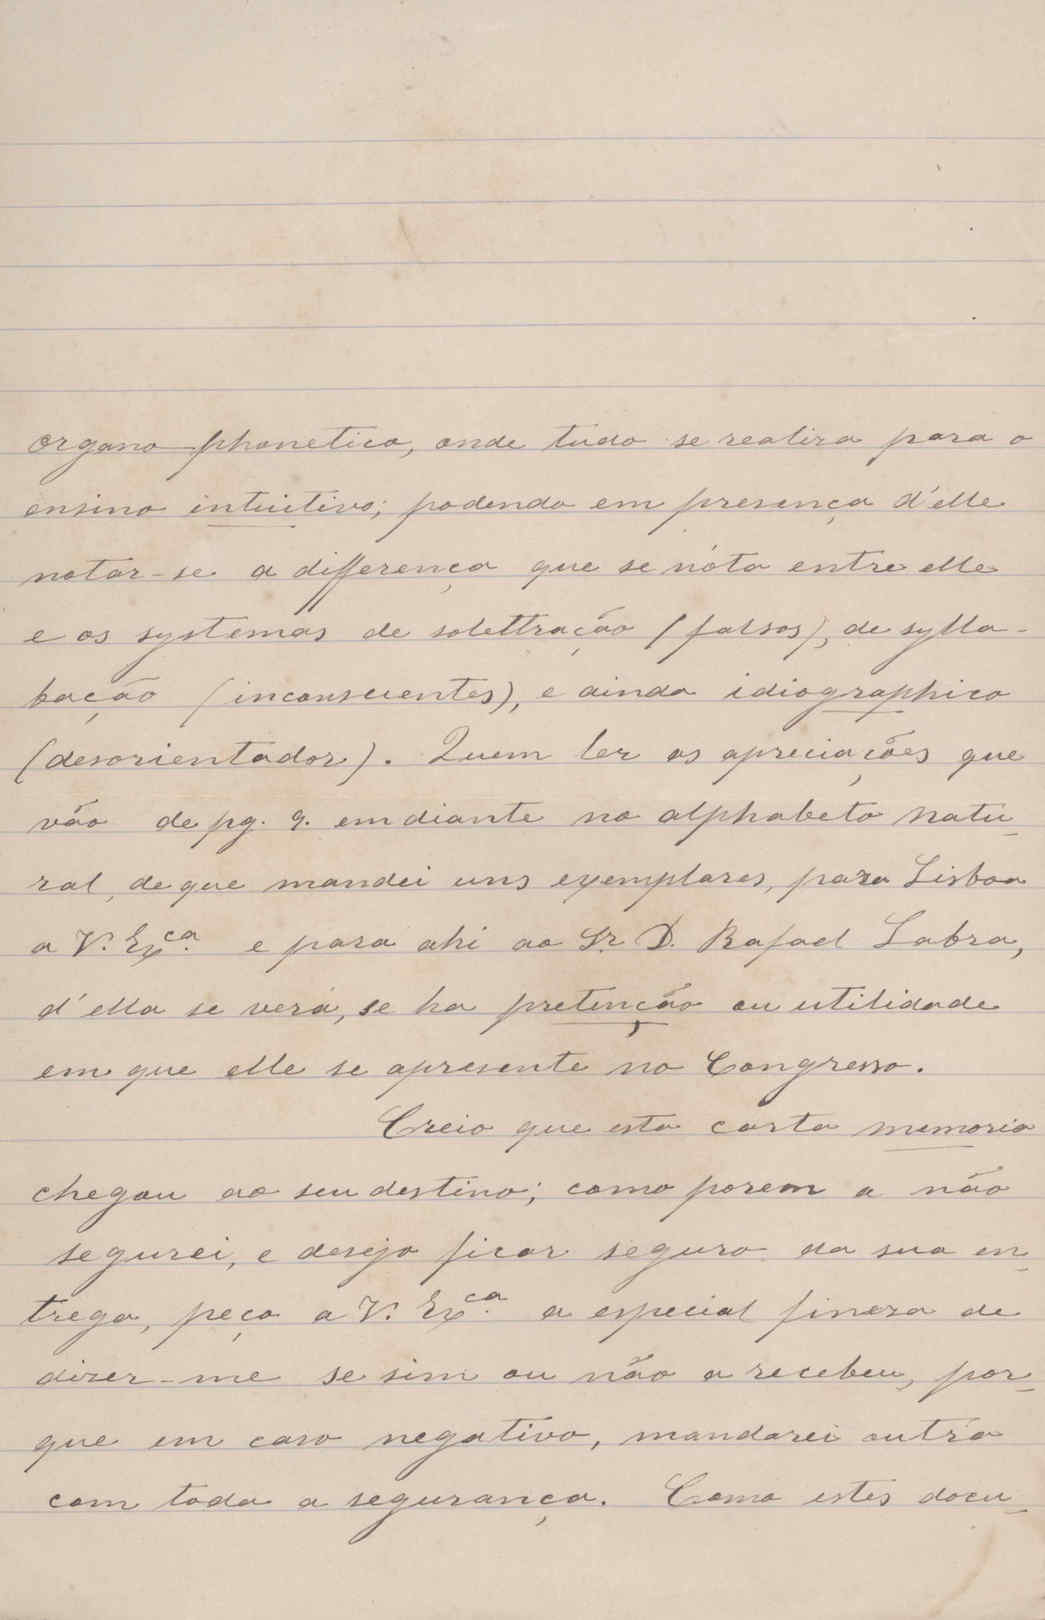 organo-phonetico, onde tudo se realiza para o
ensino intuitivo; podendo em presença d'elle
notar-se a differença que se nóta entre elle
e os systemas de solettração (falsos), de sylla-
bação (inconscientes), e ainda idiographico
(desorientador). Quem ler as apreciações que
vão de pg. 9. em diante no alphabeto natu-
ral, de que mandei uns exemplares, para Lisboa
a V. Ex.ca e para ahi ao Sr. D. Rafael Labra,
d'ella se verá, se ha pretenção ou utilidade
em que elle se apresente no Congresso.
Creio que esta carta memoria
chegou ao seu destino; como porem a não
segurei, e desejo ficar seguro da sua en-
trega, peço a V. Ex.ca a especial fineza de
dizer-me se sim ou não a recebeu, por-
que em caso negativo, mandarei outra
com toda a segurança. Como estes docu-